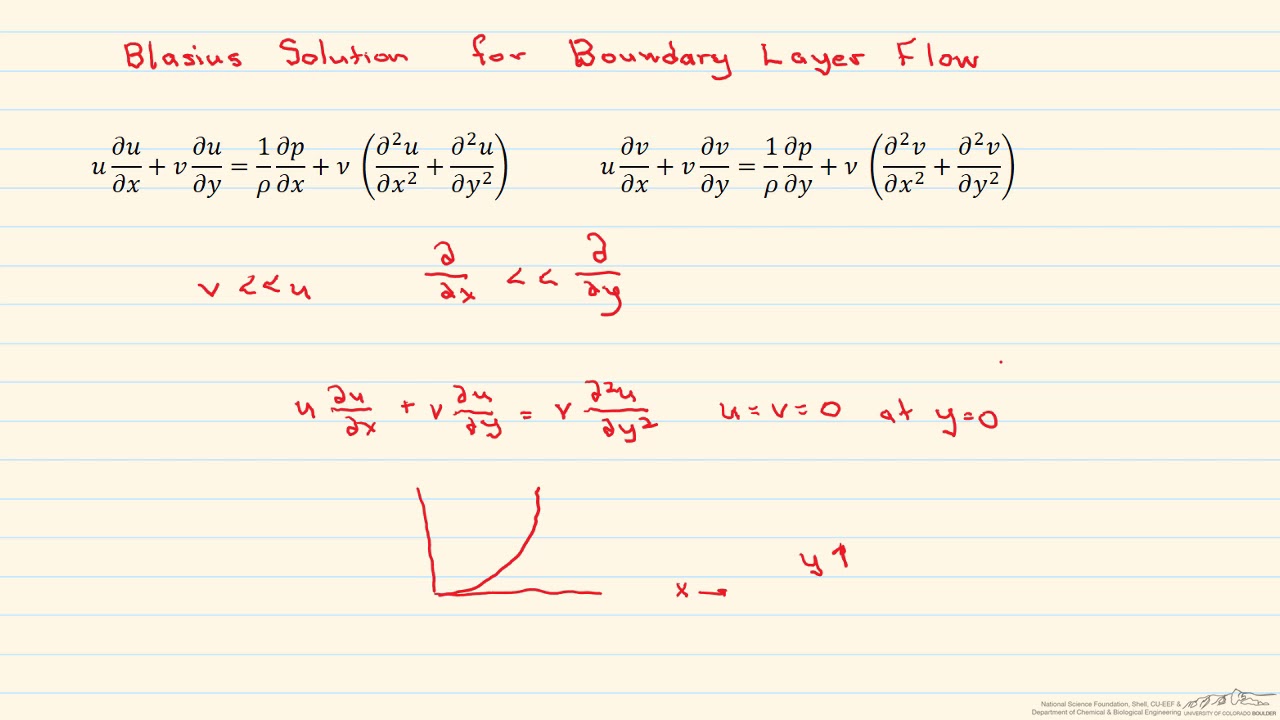 Blasius Solution for Boundary Layer Flow
u ∂u/∂x + v ∂u/∂y = 1/ρ ∂p/∂x + ν (∂²u/∂x² + ∂²u/∂y²)
u ∂v/∂x + v ∂v/∂y = 1/ρ ∂p/∂y + ν (∂²v/∂x² + ∂²v/∂y²)
v << u
∂/∂x << ∂/∂y
u ∂u/∂x + v ∂u/∂y = ν ∂²u/∂y²
u = v = 0 at y = 0
y ↑
x →
National Science Foundation, Shell, CU-EEF &
Department of Chemical & Biological Engineering
UNIVERSITY OF COLORADO BOULDER